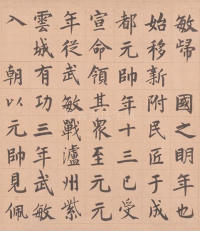 敏歸 國之明年也
始移新附民匠于成
都元帥年十三已受
宣命領其眾至元元
年從武敏戰瀘州紫
雲城有功三年武敏
入 朝以元帥見佩